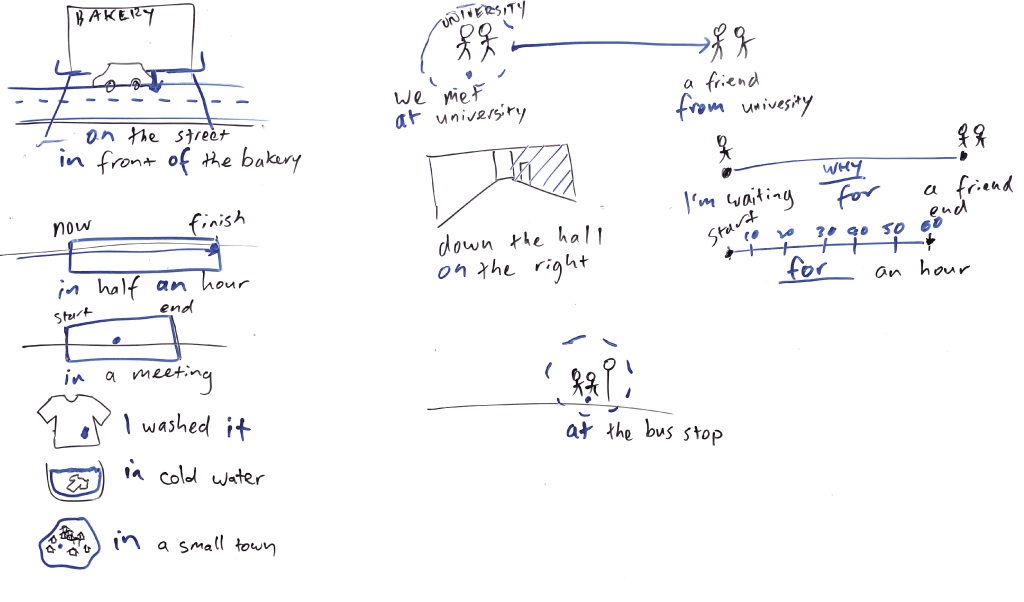 BAKERY
on the street
in front of the bakery
now finish
in half an hour
start end
in a meeting
I washed it
in cold water
in a small town
UNIVERSITY
we met
at university
a friend
from univesity
down the hall
on the right
WHY
I'm waiting for a friend
start end
10 20 30 40 50 60
for an hour
at the bus stop